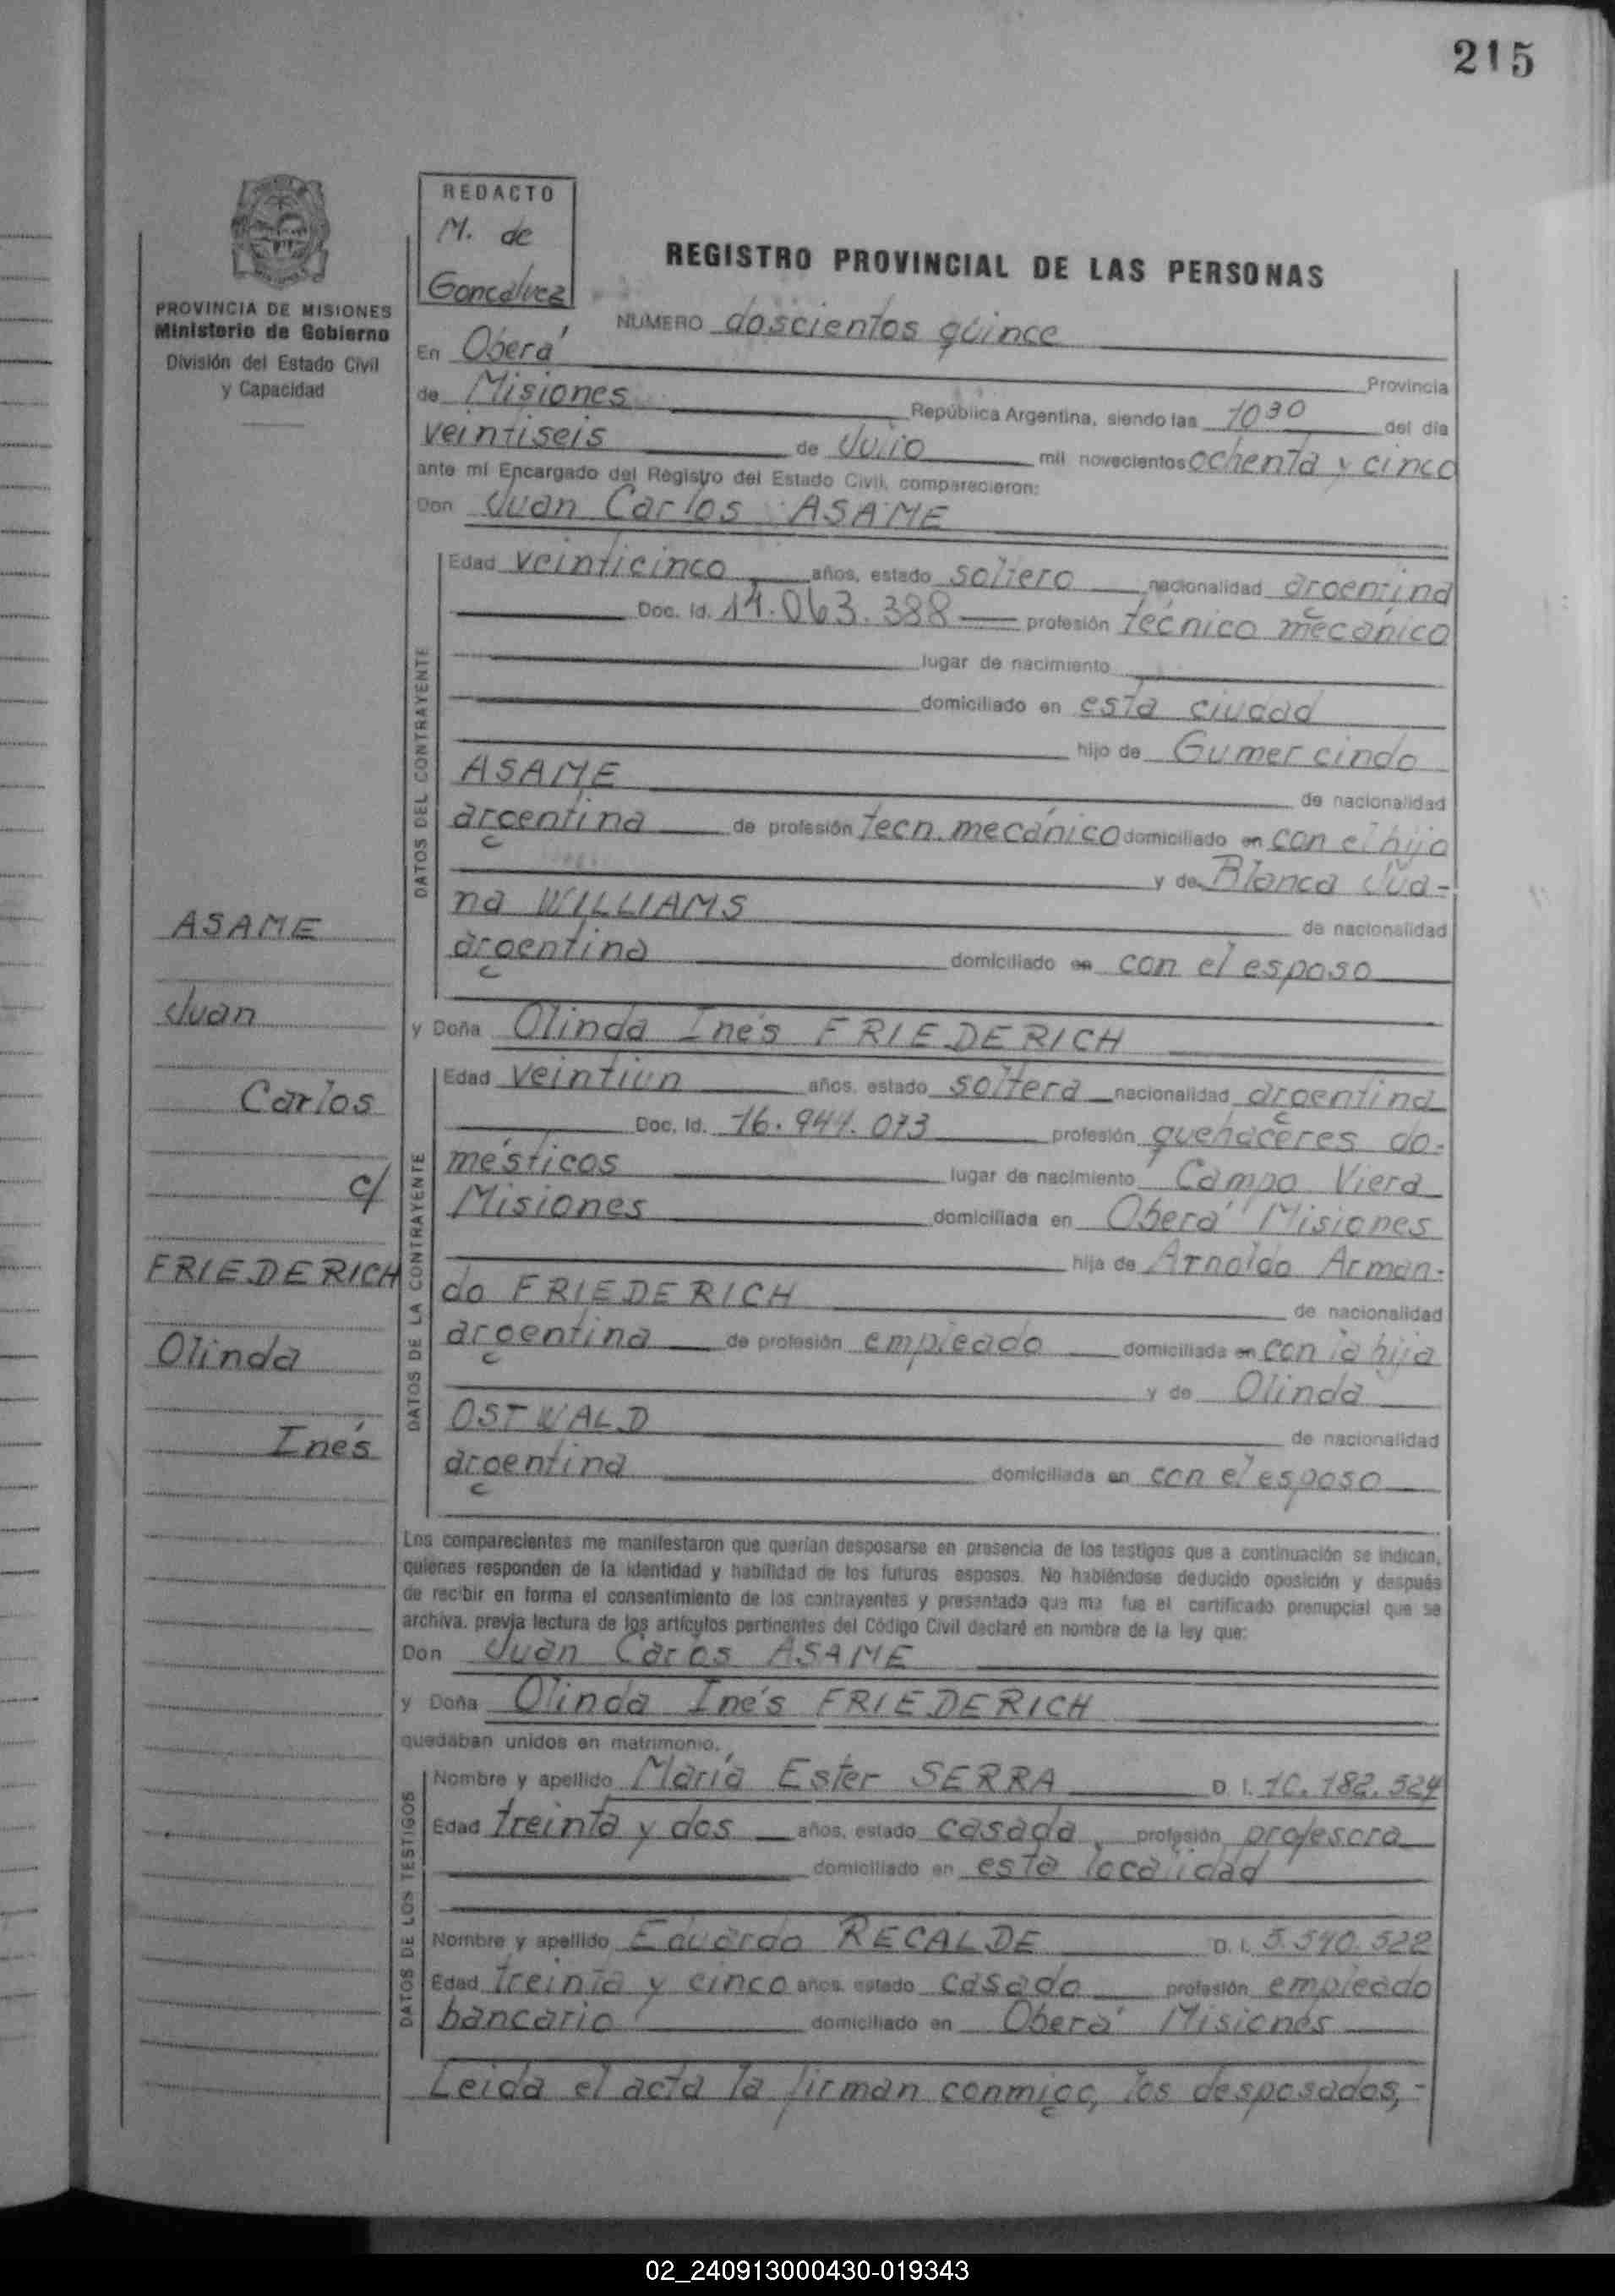 215
REDACTO
M. de
Goncalvez
REGISTRO PROVINCIAL DE LAS PERSONAS
PROVINCIA DE MISIONES
Ministerio de Gobierno
División del Estado Civil
y Capacidad
NUMERO doscientos quince
En Oberá Provincia
de Misiones República Argentina, siendo las 1030 del día
veintiseis de Julio mil novecientos ochenta y cinco
ante mí Encargado del Registro del Estado Civil, comparecieron:
Don Juan Carlos ASAME
DATOS DEL CONTRAYENTE
Edad veinticinco años, estado soltero nacionalidad argentina
Doc. Id. 14.063.388 profesión técnico mecánico
lugar de nacimiento
domiciliado en esta ciudad
hijo de Gumercindo
ASAME de nacionalidad
argentina de profesión tecn. mecánico domiciliado en con el hijo
y de Blanca Jua-
na WILLIAMS de nacionalidad
argentina domiciliado en con el esposo
y Doña Olinda Inés FRIEDERICH
DATOS DE LA CONTRAYENTE
Edad veintiun años, estado soltera nacionalidad argentina
Doc. Id. 16.944.073 profesión quehaceres do-
mésticos lugar de nacimiento Campo Viera
Misiones domiciliada en Oberá Misiones
hija de Arnoldo Arman-
do FRIEDERICH de nacionalidad
argentina de profesión empleado domiciliada en con la hija
y de Olinda
OSTWALD de nacionalidad
argentina domiciliada en con el esposo
ASAME
Juan
Carlos
c/
FRIEDERICH
Olinda
Inés
Los comparecientes me manifestaron que querían desposarse en presencia de los testigos que a continuación se indican,
quienes responden de la identidad y habilidad de los futuros esposos. No habiéndose deducido oposición y después
de recibir en forma el consentimiento de los contrayentes y presentado que me fue el certificado prenupcial que se
archiva, previa lectura de los artículos pertinentes del Código Civil declaré en nombre de la ley que:
Don Juan Caros ASAME
y Doña Olinda Inés FRIEDERICH
quedaban unidos en matrimonio.
DATOS DE LOS TESTIGOS
Nombre y apellido María Ester SERRA D. I. 10.182.524
Edad treinta y dos años, estado casada profesión profesora
domiciliado en esta localidad
Nombre y apellido Eduardo RECALDE D. I. 5.540.522
Edad treinta y cinco años, estado casado profesión empleado
bancario domiciliado en Oberá Misiones
Leida el acta la firman conmigo, los desposados,-
02_240913000430-019343